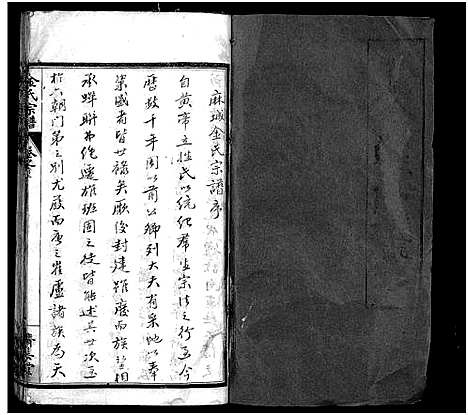 麻城金氏宗譜序
自黄帝立姓氏以統紀羣生宗法之行至今
歷數千年周以前公卿列大夫有采地以奉
祭盛者皆世祿矣厥後封建雖廢而族望相
承蟬聯弗絶遷雄班固之徒皆能述其世次至
於六朝門第之別尤嚴而唐之崔盧諸族為天
金氏宗譜